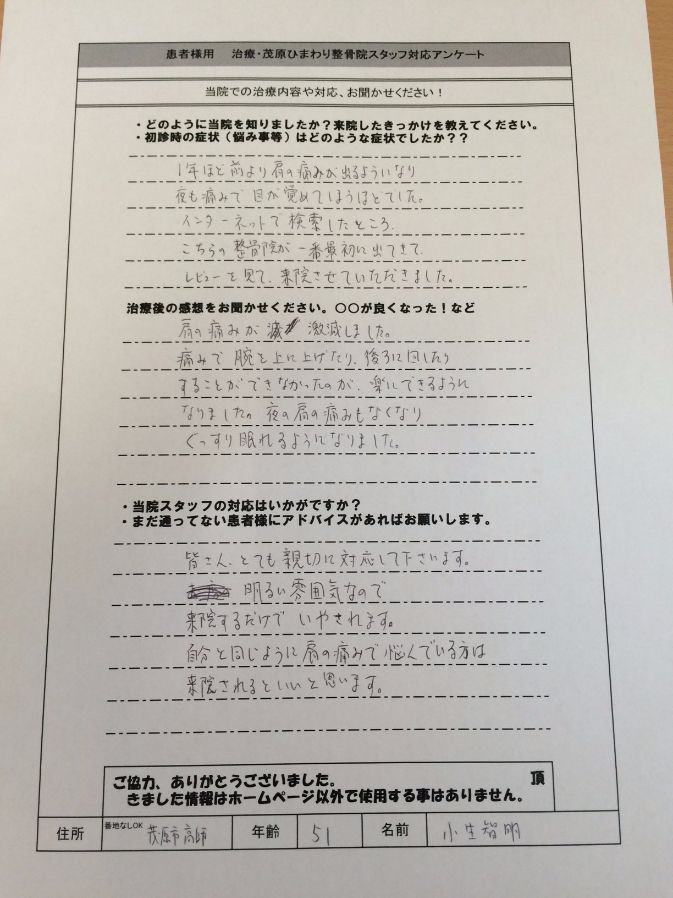 患者様用 治療・茂原ひまわり整骨院スタッフ対応アンケート
当院での治療内容や対応、お聞かせください！
・どのように当院を知りましたか？来院したきっかけを教えてください。
・初診時の症状（悩み事等）はどのような症状でしたか？？
1年ほど前より肩の痛みが出るようになり
夜も痛みで目が覚めてしまうほどでした。
インターネットで検索したところ、
こちらの整骨院が一番最初に出てきて、
レビューを見て、来院させていただきました。
治療後の感想をお聞かせください。〇〇が良くなった！など
肩の痛みが 激減しました。
痛みで腕を上に上げたり、後ろに回したり
することができなかったのが、楽にできるように
なりました。夜の肩の痛みもなくなり
ぐっすり眠れるようになりました。
・当院スタッフの対応はいかがですか？
・まだ通ってない患者様にアドバイスがあればお願いします。
皆さん、とても親切に対応して下さいます。
明るい雰囲気なので
来院するだけでいやされます。
自分と同じように肩の痛みで悩んでいる方は
来院されるといいと思います。
ご協力、ありがとうございました。 頂
きました情報はホームページ以外で使用する事はありません。
住所 番地なしOK 茂原市高師 年齢 51 名前 小生智明